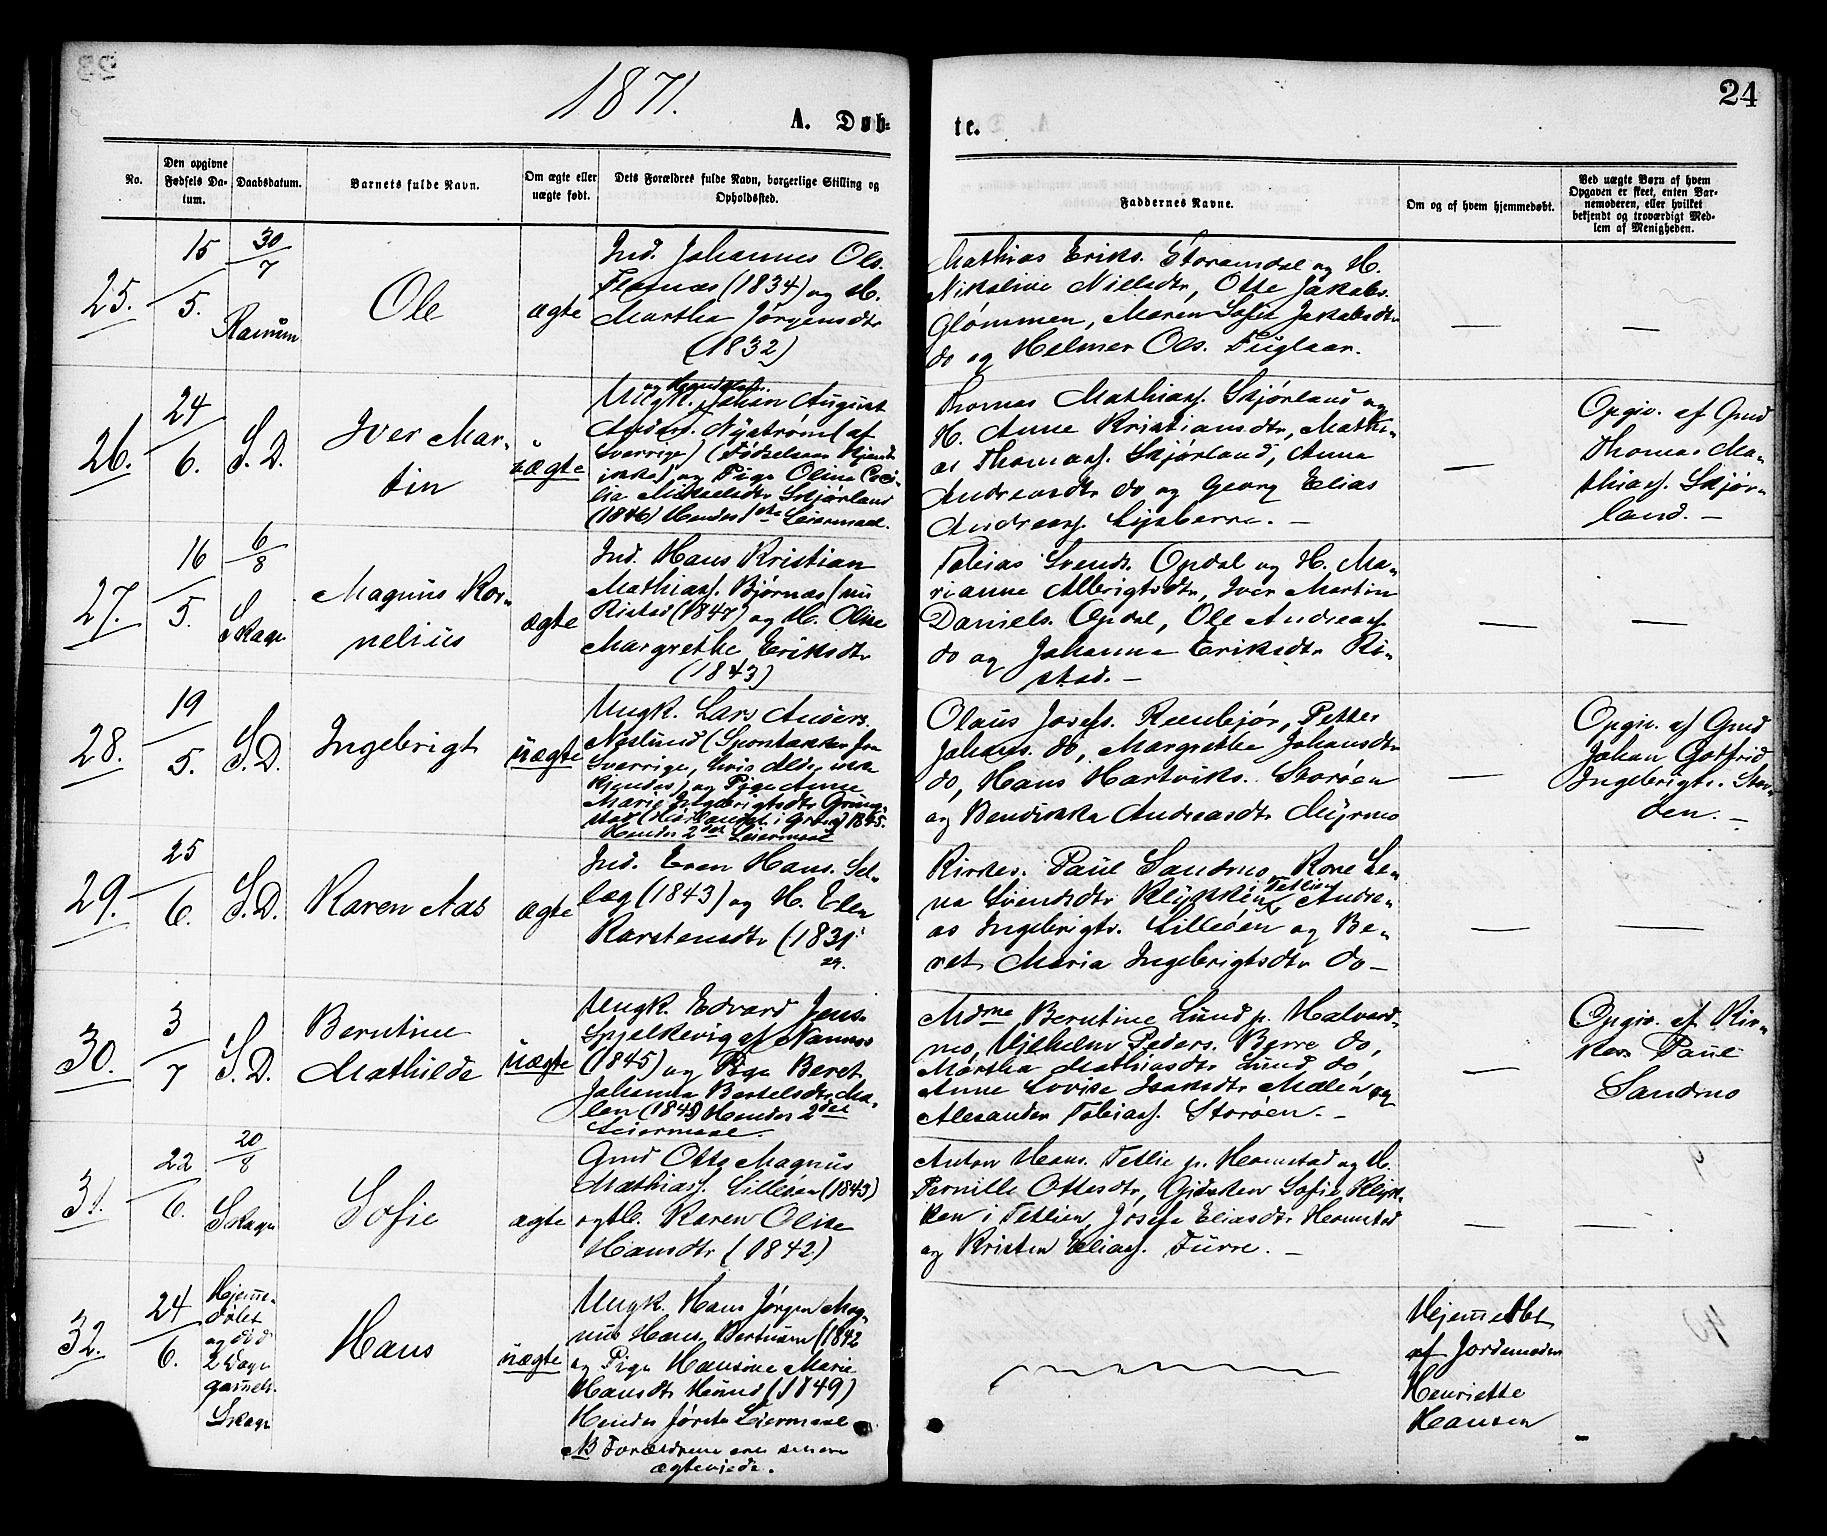 1871.
24
A. Døb-
te.
No.
Den opgivne
Fødsels Da-
tum.
Daabsdatum.
Barnets fulde Navn.
Om ægte eller
uægte født.
Dets Forældres fulde Navn, borgerlige Stilling og
Opholdssted.
Faddernes Navne.
Om og af hvem hjemmedøbt.
Ved uægte Børn af hvem
Opgaven er skeet, enten Bar-
nemoderen, eller hvilket
bekjendt og troværdigt Med-
lem af Menigheden.
25.
15
5.
30
7
Ramsum
Ole
ægte
Ind. Johannes Ols.
Flasnæs (1834) og H.
Martha Jørgensdtr
(1832)
Mathias Eriks. Storemdal og H.
Nikoline Nilsdtr, Otte Jakobs.
Glømmen, Maren Sofie Jakobsdtr
do og Helmer Ols. Fuglaar.
—
—
26.
24
6.
S. D.
Iver Mar-
tin
uægte
Ungk. Johan August
Anders. Nystrøm (af
Sverrige) (Fødselsaar kjendes
ikke) og Pige Olina Ceci-
lia Mikaelsdtr Skjørland
(1846) Hendes 1ste Leiermaal.
Thomas Mathias. Skjørland og
H. Anne Kristiansdtr, Mathi-
as Thomass. Skjørland, Anna
Andreasdtr do og Georg Elias
Andreass. Lysberre. —
—
Opgiv. af Gmd
Thomas Ma-
thiass. Skjør-
land. —
27.
16
5.
6
8
Skage
Magnus Kor-
nelius
ægte
Ind. Hans Kristian
Mathiass. Bjørnæs (nu
Ristad (1847) og H. Oline
Margrethe Eriksdtr
(1843)
Tobias Svends. Opdal og H. Ma-
rianne Albrigtsdtr, Iver Martin
Daniels. Opdal, Ole Andreass.
do og Johanna Eriksdtr Ri-
stad. —
—
—
28.
19
5.
S. D.
Ingebrigt
uægte
Ungk. Lars Anders.
Nyslund (Spontakker fra
Sverrige, hvis Alder ikke
kjendes) og Pige Anne
Marie Ingebrigtsdtr Gröng-
stad (Hörlandet i Grong) 1845.
Hendes 2det Leiermaal
Olaus Josefs. Rembjør, Petter
Johans. do, Margrethe Johansdtr
do, Hans Hartviks. Storøen
og Bendikka Andreasdtr Myrmo
—
Opgiv. af Gmd
Johan Gotfrid
Ingebrigts. Stor-
øen. —
29.
25
6.
S. D.
Karen Aas
ægte
Ind. Even Hans. Sel-
læg (1843) og H. Elen
Karstensdtr (1831
29.
Kirkes. Paul Sandmo, Kone Le-
na Svendsdtr Klykken Tetlien, Andre-
as Ingebrigts. Lilleøen og Be-
ret Maria Ingebrigtsdtr do —
—
—
30.
3
7
S. D.
Berntine
Mathilde
uægte
Ungk. Edvard Jens.
Spjelkevig af Namsos
(1845) og Pige Beret
Johanna Bertelsdtr Mæ-
len (1843) Hendes 2det
Leiermaal.
Mdme Berntine Lund p. Halvard-
mo, Vilhelm Peders. Berre do,
Martha Mathiasdtr Lund do,
Anne Lovise Isaksdtr Mælen og
Alexander Tobiass. Storøen. —
—
Opgiv. af Kir-
kes. Paul
Sandmo
31.
22
6.
20
8
Skage
Sofie
ægte
Gmd Otto Magnus
Mathiass. Lilleøen (1843)
og H. Karen Oline
Hansdtr (1842)
Anton Hans. Tetlie p. Homstad og H.
Pernille Ottesdtr, Gjdsken Sofie Klyk-
ken i Tetlien, Josefa Eliasdtr Homstad
og Kristen Eliass. Furre. —
—
—
32.
24
6.
Hjemme-
døbt
og død
2 Dage
gammel.
Skage
Hans
uægte
Ungk. Hans Jørgen Mag-
nus Hans. Bertnæm (1842
og Pige Hansine Marie
Hansdtr Hunnd (1849)
Hendes første Leiermaal
NB Forældrene ere senere
ægteviede.
Hjemmedøbt
af Jordemoder
Henriette
Hansen